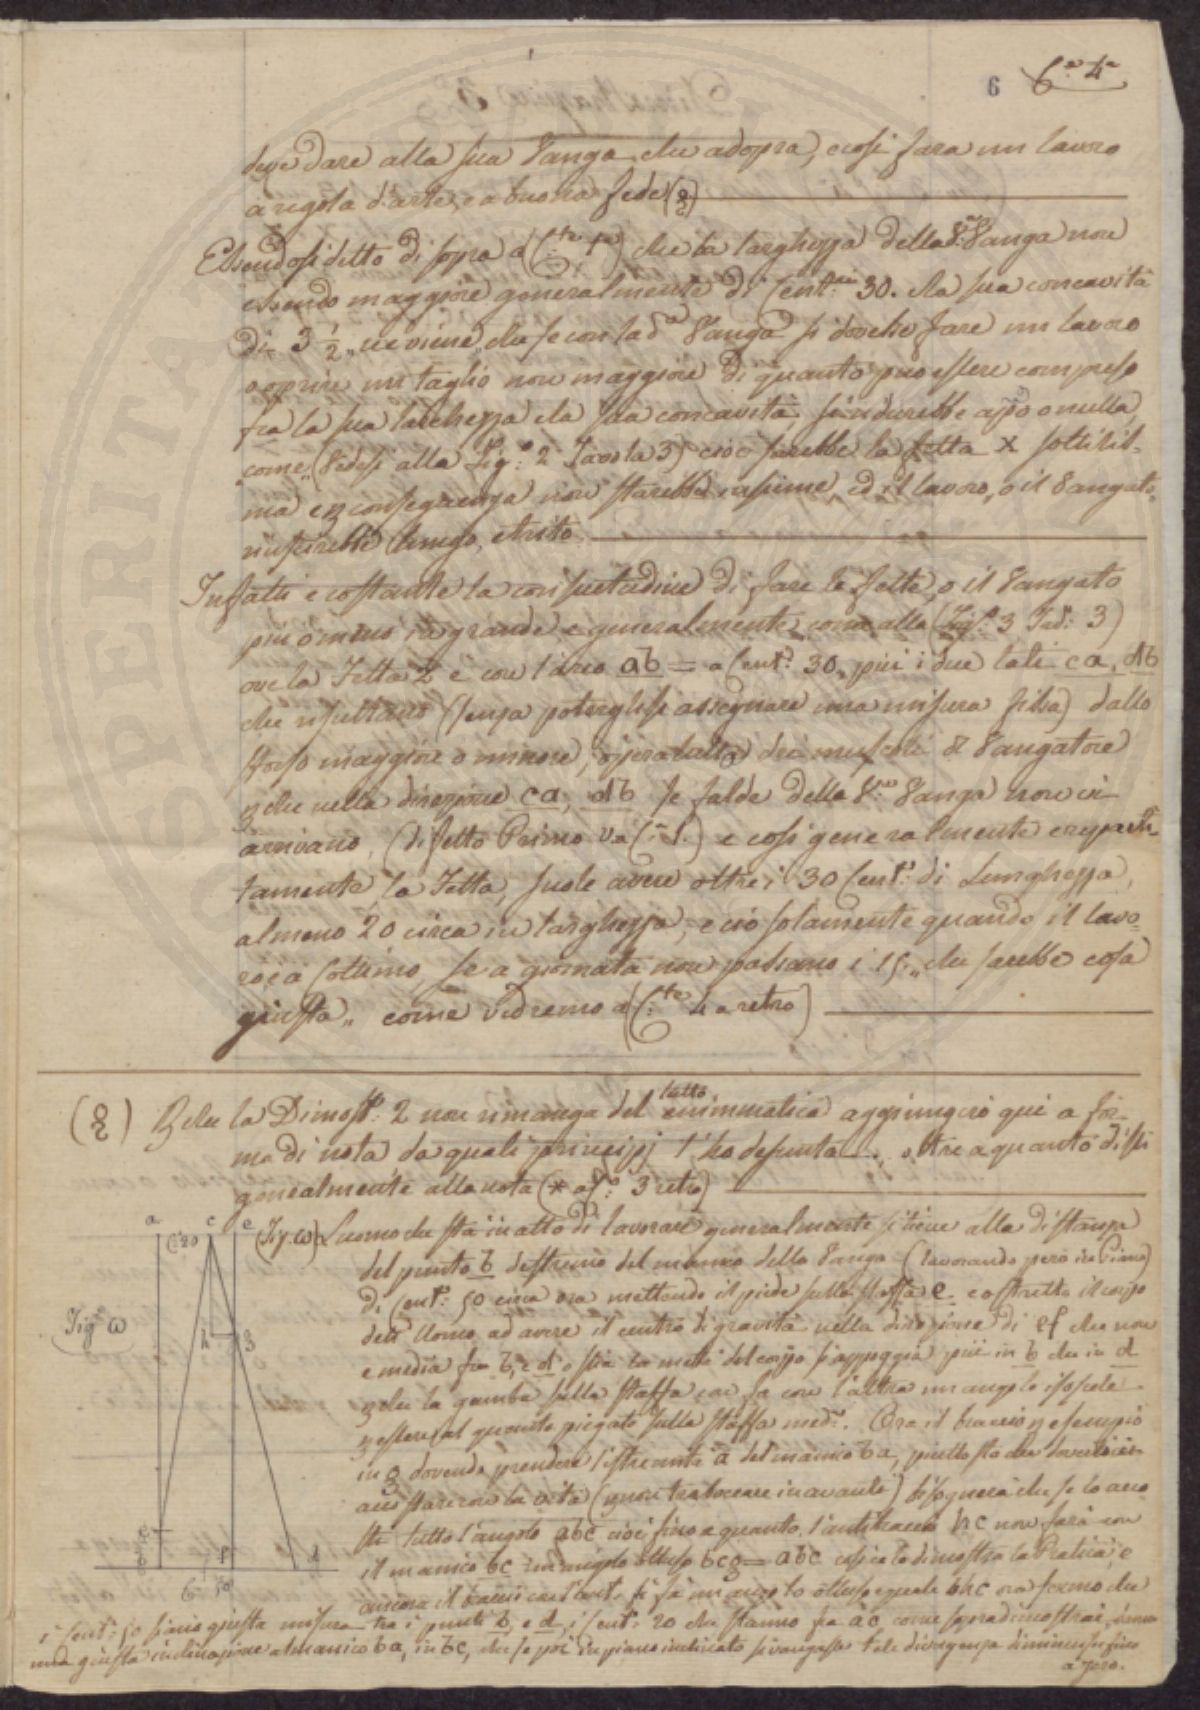 6 C.ª 4ª
deve dare alla sua Vanga che adopra, e così farà un lavoro
a regola d'arte, e a buona fede (&)
Essendosi detto di sopra a (C.te 1ª) che la larghezza della d.ª Vanga non
essendo maggiore generalmente di Cent.mi 30. e la sua concavità
di 3 1/2 „ ne viene „ che se con la d.ª Vanga si dovesse fare un lavoro
o aprire un taglio non maggiore di quanto può essere compreso
fra la sua larghezza e la sua concavità, si ridurebbe a poco o nulla,
come (Vedesi alla Fig.ª 2 Tavola 3) cioè sarebbe la fetta X sottilis-
ma e in conseguenza non starebbe insieme, ed il lavoro, o il Vangato,
riuscirebbe lungo, e trito.
Infatti è costante la consuetudine di fare le fette, o il Vangato
più o meno in grande e generalmente come alla (Fig.ª 3 Tav: 3)
ove la Fetta Z è con l'arco ab = a Cent.i 30, più i due lati ca, db
che risultano (senza potergli si assegnare una misura fissa) dallo
sforzo maggiore o minore, dei muscoli Vangatore
che nella direzione ca, db le falde della Vanga non ci
arrivano, (difetto Primo ) e così generalmente
tamente, la Fetta, suole avere oltre i 30 Cent.i di Lunghezza,
almeno 20 circa in larghezza, e ciò solamente quando il lavo-
ro è a Cottimo, se a giornata non passano i 15 „ che sarebbe cosa
giusta „ come vedremo a (C.te 4 a retro)
(&) che la Dimost.ne 2 non rimanga del tutto enimmatica aggiungerò qui a for-
ma di nota da quali principj l'ho desunta, oltre a quanto dissi
genealmente alla nota (* a C.ª 3 retro)
a c e
C.i 20
Fig.ª ω
h g
b f d
50
(Fig. ω) L'uomo che sta in atto di lavorare generalmente si tiene alla distanza
del punto b d'estremo del manico della Vanga (lavorando però in Piano)
di Cent.i 50 circa ora mettendo il piede sulla staffa e costretto il corpo
dell'Uomo ad avere il centro di gravità nella direzione di ef che non
è media fra b, e d o sia la metà del corpo s'appoggia più in b che in d
che la gamba sulla staffa fa con l'altra un angolo isoscele
essere alquanto piegata sulla staffa med.ª. Ora il braccio esempio
in g dovendo prendere l'estremità a del manico ba, piuttosto che doversi
accostare con la vita ( non traboccare in avanti) bisognerà che se lo acco-
sti tutto l'angolo abc cioè fino a quanto l'antibraccio hc non farà con
il manico bc un angolo ottuso bcg = abc così ce lo dimostra la Pratica, e
ancora il braccio con l'ant. si fa un angolo ottuso eguale bhc ora fermo che
i Cent.i 50 siano giusta misura tra i punti b, e d, i Cent.i 20 che stanno fra ac come sopra dimostrai, danno
una giusta inclinazione al manico ba, in bc, che se poi in piano inclinato si vangasse tale divergenza diminuisce fino
a zero.